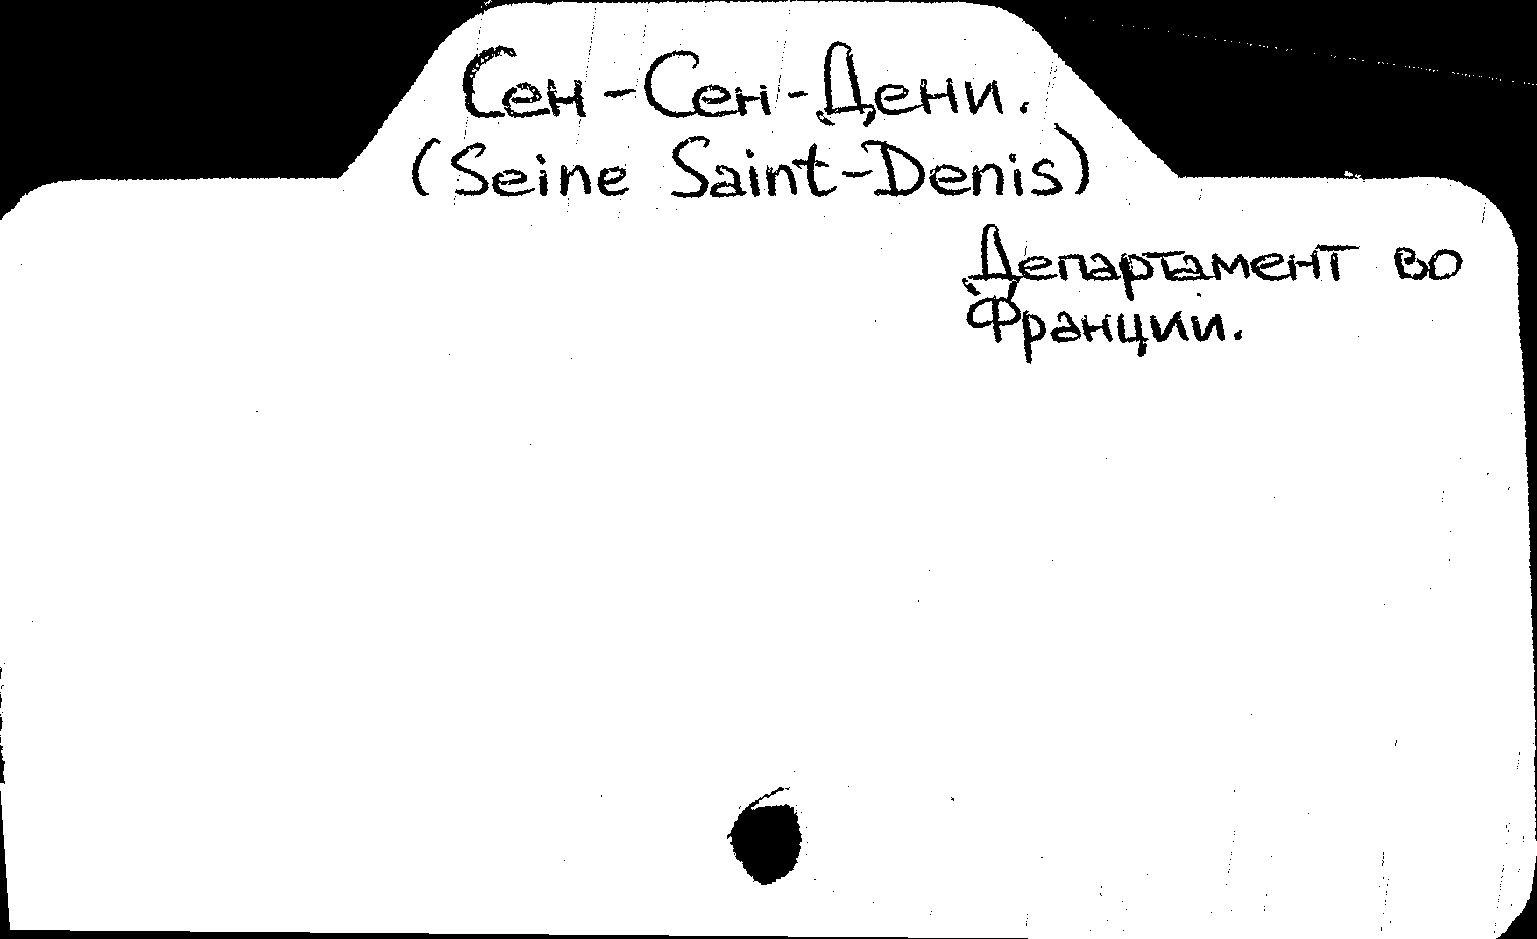 Сен-Сен-Дени.
(Seine Saint-Denis)
Департамент во
Франции.